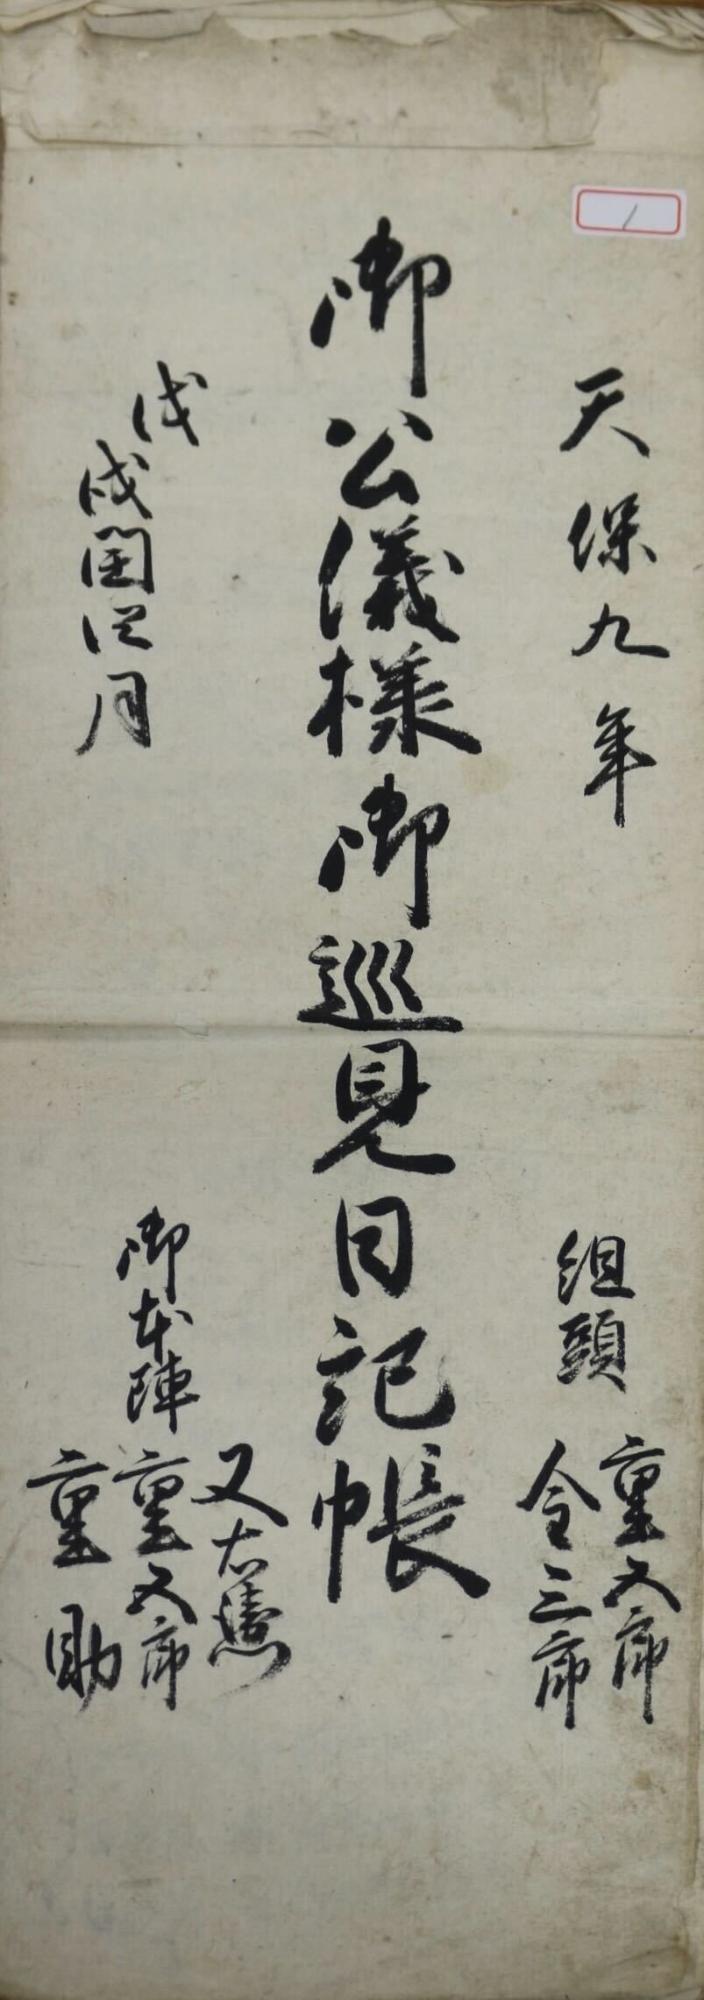 天保九年
組頭
重又郎
令三郎
御公儀様御巡見日記帳
戊
戌閏四月
御本陣
又右衛門
重又郎
重助